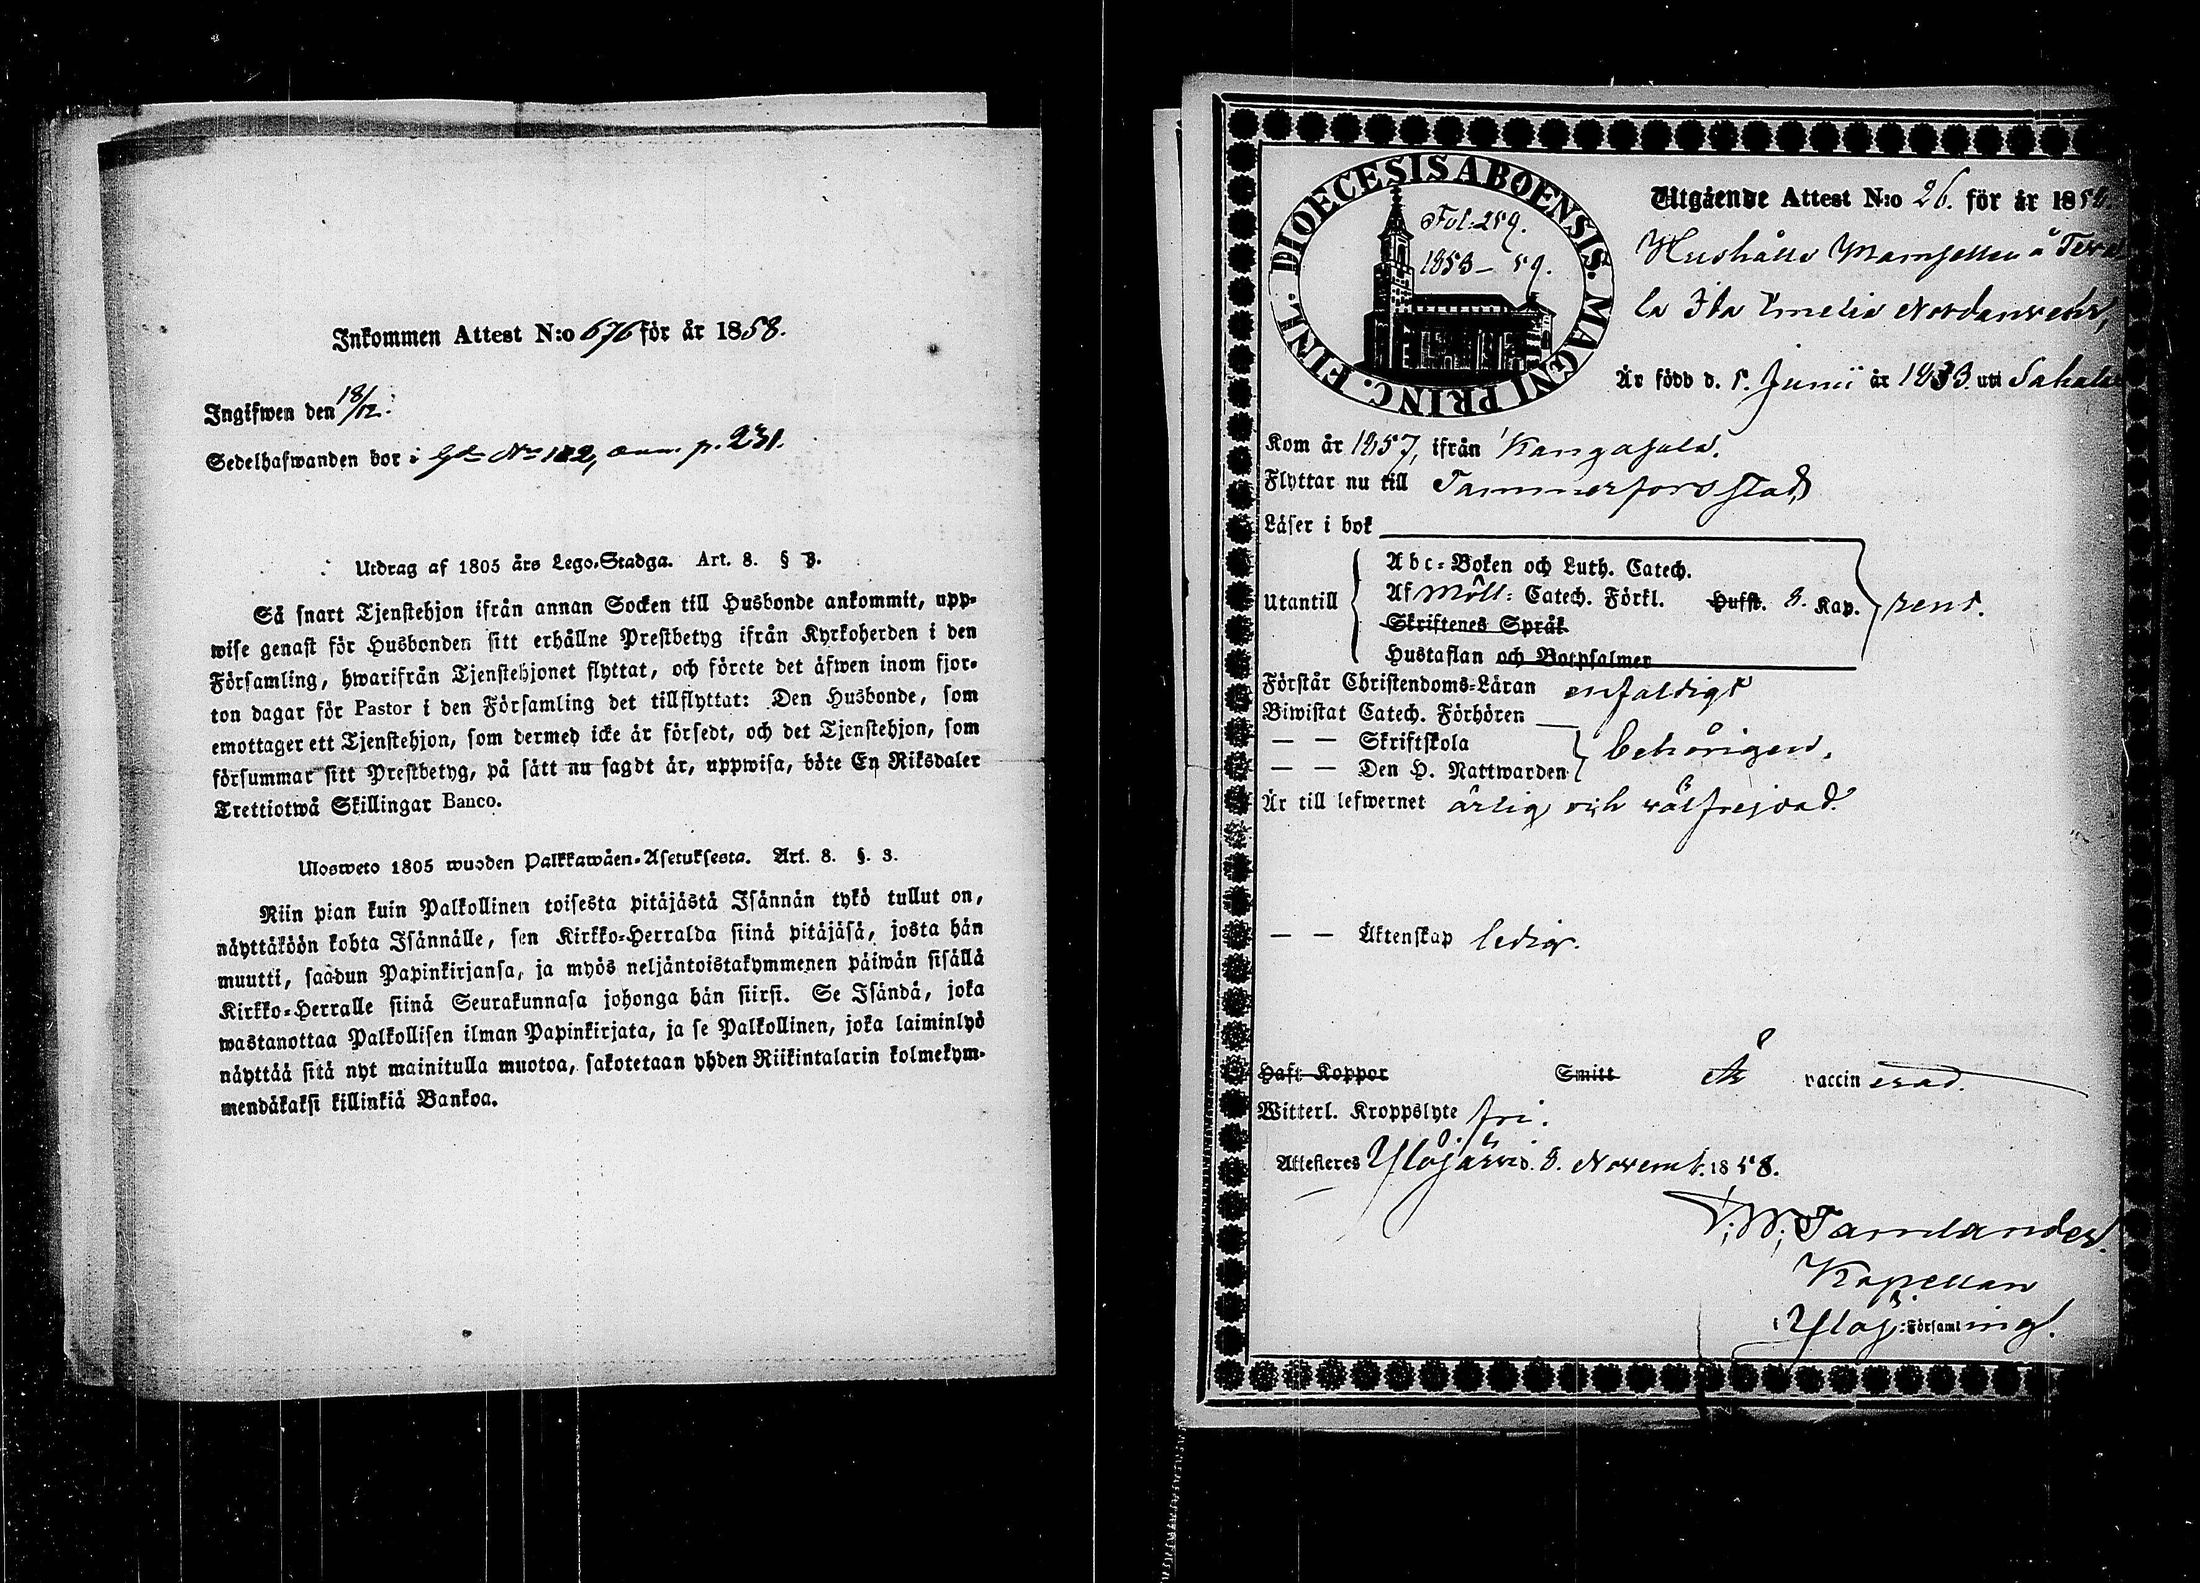 Inkommen Attest N:o 676 för år 1858.
Ingifwen den 18/12.
Sedelhafwanden bor i Gd. No 102, ann. p. 231.
Utdrag af 1805 års Lego-Stadga. Art. 8. § 3.
Så snart Tjenstehjon ifrån annan Socken till Husbonde ankommit, upp-
wise genast för Husbonden sitt erhållne Prestbetyg ifrån Kyrkoherden i den
Församling, hwarifrån Tjenstehjonet flyttat, och förete det äfwen inom fjor-
ton dagar för Pastor i den Församling det tillflyttat: Den Husbonde, som
emottager ett Tjenstehjon, som dermed icke är försedt, och det Tjenstehjon, som
försummar sitt Prestbetyg, på sätt nu sagdt är, uppwisa, böte En Riksdaler
Trettiotwå Skillingar Banco.
Ulosweto 1805 wuoden Palkkawäen-Asetuksesta. Art. 8. §. 3.
Niin pian kuin Palkollinen toisesta pitäjästä Isännän tykö tullut on,
näyttäköön kohta Isännälle, sen Kirkko-Herralda siinä pitäjäsä, josta hän
muutti, saadun Papinkirjansa, ja myös neljäntoistakymmenen päiwän sisällä
Kirkko-Herralle siinä Seurakunnasa johonga hän siirsi. Se Isändä, joka
wastanottaa Palkollisen ilman Papinkirjata, ja se Palkollinen, joka laiminlyö
näyttää sitä nyt mainitulla muotoa, sakotetaan yhden Riikintalarin kolmekym-
mendäkaksi killinkiä Bankoa.
DIOECESIS ABOENSIS. MAGNI PRINC. FINL.
Fol: 259.
1853-59.
Utgående Attest N:o 26. för år 1858.
Hushålls Mamsellen å Tera
la Ida Emelie Nordanswahn,
Är född d. 5. Junii år 1833. uti Sahala
Kom år 1857, ifrån Kangasala.
Flyttar nu till Tammerfors stad
Läser i bok
Utantill
Abc-Boken och Luth. Catech.
Af Möll: Catech. Förkl. Hufst. 8. Kap.
rent.
Skriftenes Språk
Hustaflan och Botpsalmer
Förstår Christendoms-Läran enfaldigt
Biwistat Catech. Förhören
— — Skriftskola
behörigen.
— — Den H. Nattwarden
Är till lefwernet ärlig och wälfrejdad.
— — Äktenskap ledig.
Haft Koppor Smitt Är vaccinerad.
Witterl. Kroppslyte fri.
Attesteras Ylöjärvi d. 8. Novemb. 1858.
F. W. Tamlander.
Kapellan
i Ylöj: Församling.